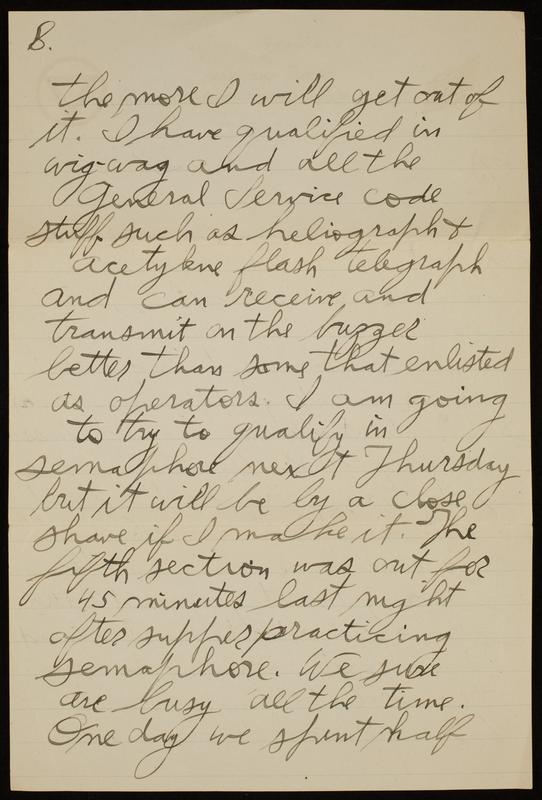 8.
the more I will get out of
it. I have qualified in
wig-wag and all the
General Service code
stuff such as heliograph &
acetylene flash telegraph
and can receive and
transmit on the buzzer
better than some that enlisted
as operators. I am going
to try to qualify in
semaphore next Thursday
but it will be by a close
shave if I make it. The
fifth section was out for
45 minutes last night
after supper practicing
semaphore. We sure
are busy all the time.
One day we spent half